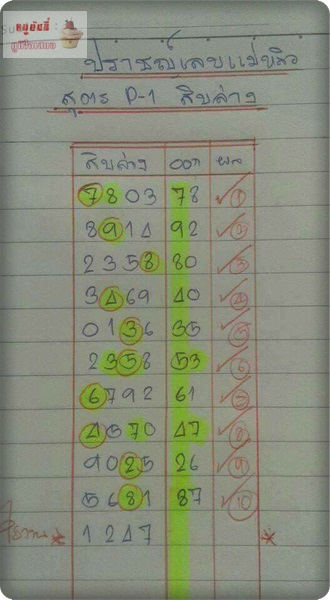 หมูยันตี้
ปราชญ์เลขแม่หลิว
สูตร P-1 สิบล่าง
สิบล่าง ออก ผล
7803 78 ✓ 1
8914 92 ✓ 2
2358 80 ✓ 3
3469 40 ✓ 4
0136 35 ✓ 5
2358 53 ✓ 6
6792 61 ✓ 7
4570 47 ✓ 8
9025 26 ✓ 9
5681 87 ✓ 10
1247